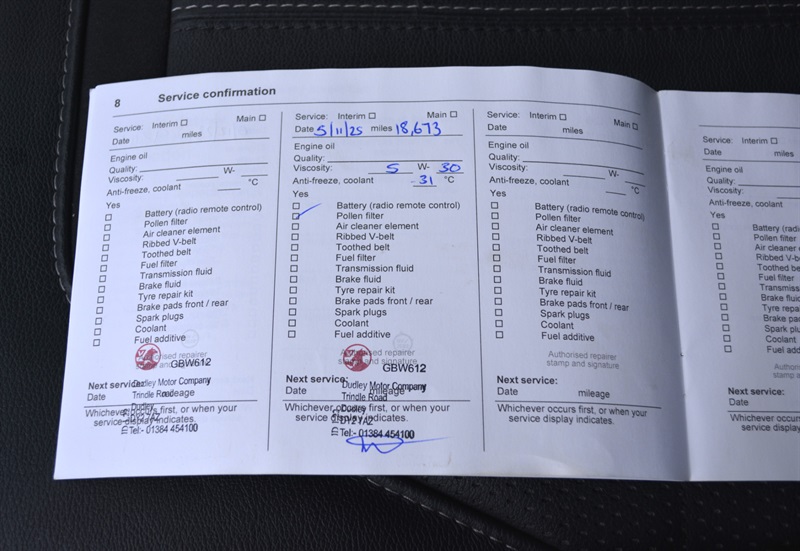 8 Service confirmation
Service: Interim Main
Date miles
Engine oil
Quality:
Viscosity: W-
Anti-freeze, coolant °C
Yes
Battery (radio remote control)
Pollen filter
Air cleaner element
Ribbed V-belt
Toothed belt
Fuel filter
Transmission fluid
Brake fluid
Tyre repair kit
Brake pads front / rear
Spark plugs
Coolant
Fuel additive
Authorised repairer
stamp and signature
GBW612
Next service:
Dudley Motor Company
Date mileage
Trindle Road
Dudley
Whichever occurs first, or when your
DY2 7AZ
service display indicates.
Tel:- 01384 454100
Service: Interim Main
Date 5/11/25 miles 18,673
Engine oil
Quality:
Viscosity: 5 W- 30
Anti-freeze, coolant 31 °C
Yes
Battery (radio remote control)
Pollen filter
Air cleaner element
Ribbed V-belt
Toothed belt
Fuel filter
Transmission fluid
Brake fluid
Tyre repair kit
Brake pads front / rear
Spark plugs
Coolant
Fuel additive
Authorised repairer
stamp and signature
GBW612
Next service:
Dudley Motor Company
Date mileage
Trindle Road
Dudley
Whichever occurs first, or when your
DY2 7AZ
service display indicates.
Tel:- 01384 454100
Service: Interim Main
Date miles
Engine oil
Quality:
Viscosity: W-
Anti-freeze, coolant °C
Yes
Battery (radio remote control)
Pollen filter
Air cleaner element
Ribbed V-belt
Toothed belt
Fuel filter
Transmission fluid
Brake fluid
Tyre repair kit
Brake pads front / rear
Spark plugs
Coolant
Fuel additive
Authorised repairer
stamp and signature
Next service:
Date mileage
Whichever occurs first, or when your
service display indicates.
Service: Interim
Date miles
Engine oil
Quality:
Viscosity:
Anti-freeze, coolant
Yes
Battery (radi
Pollen filter
Air cleaner
Ribbed V-b
Toothed be
Fuel filter
Transmiss
Brake fluid
Tyre repa
Brake pad
Spark plu
Coolant
Fuel add
Authorise
stamp a
Next service:
Date
Whichever occur
service display